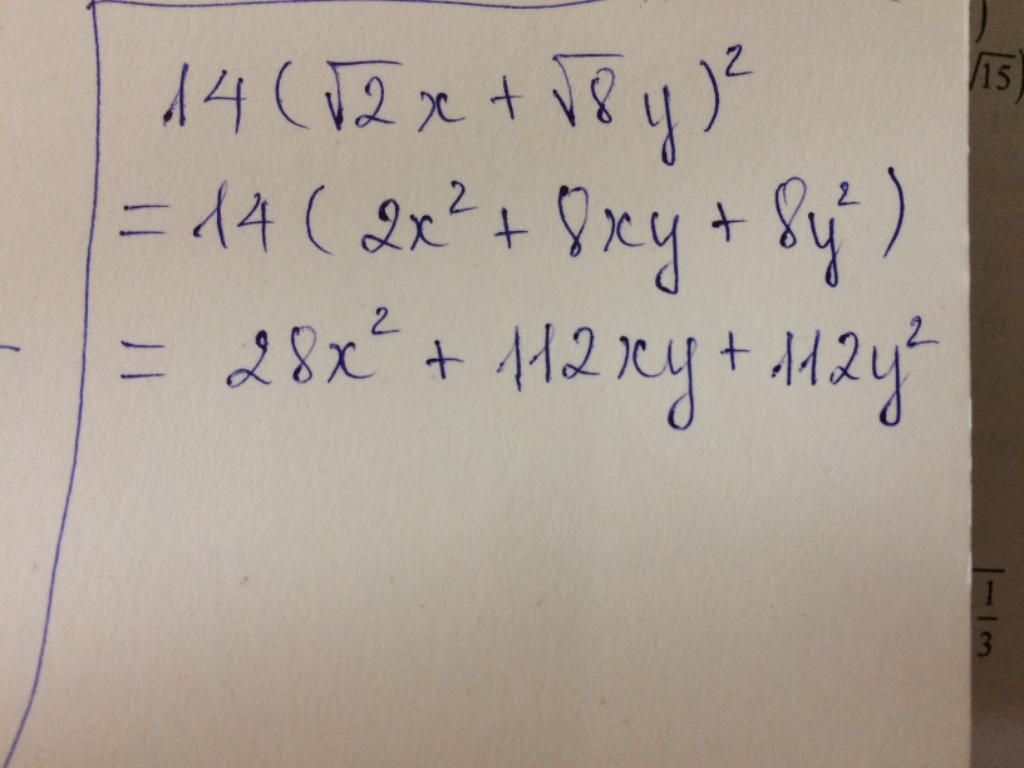 14(√2x + √8y)²
= 14(2x² + 8xy + 8y²)
= 28x² + 112xy + 112y²
)
√15)
1
3